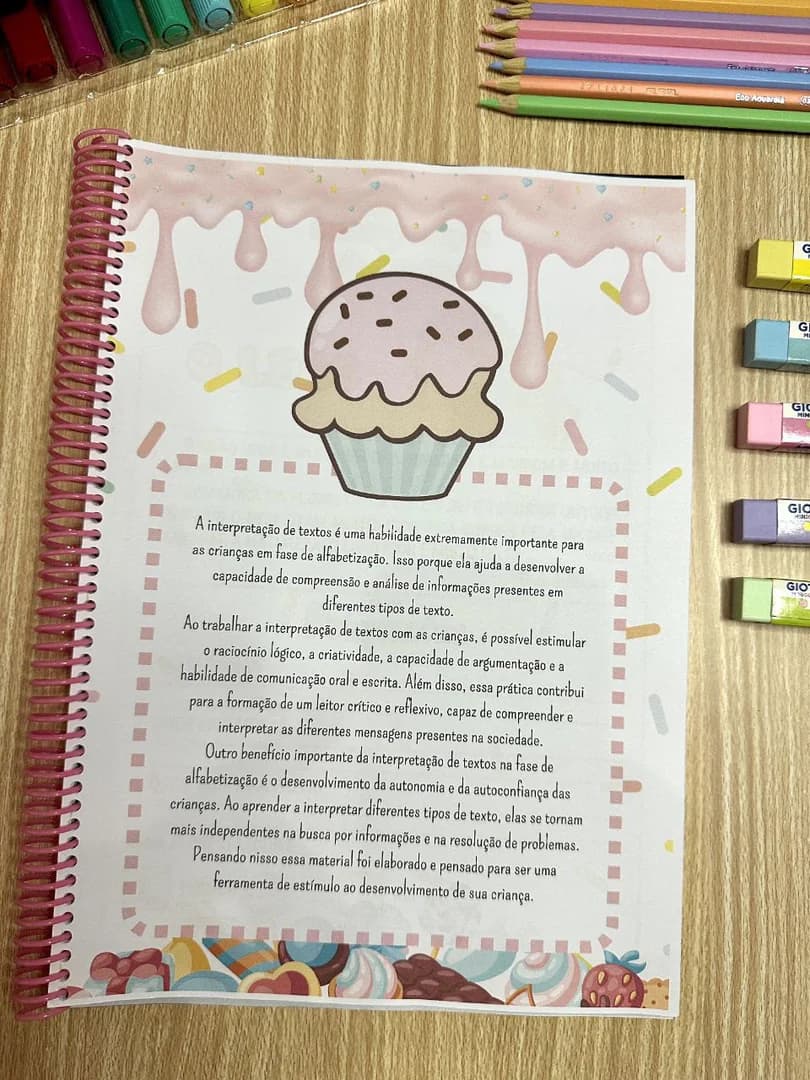 Eco Aquarela
A interpretação de textos é uma habilidade extremamente importante para
as crianças em fase de alfabetização. Isso porque ela ajuda a desenvolver a
capacidade de compreensão e análise de informações presentes em
diferentes tipos de texto.
Ao trabalhar a interpretação de textos com as crianças, é possível estimular
o raciocínio lógico, a criatividade, a capacidade de argumentação e a
habilidade de comunicação oral e escrita. Além disso, essa prática contribui
para a formação de um leitor crítico e reflexivo, capaz de compreender e
interpretar as diferentes mensagens presentes na sociedade.
Outro benefício importante da interpretação de textos na fase de
alfabetização é o desenvolvimento da autonomia e da autoconfiança das
crianças. Ao aprender a interpretar diferentes tipos de texto, elas se tornam
mais independentes na busca por informações e na resolução de problemas.
Pensando nisso essa material foi elaborado e pensado para ser uma
ferramenta de estímulo ao desenvolvimento de sua criança.